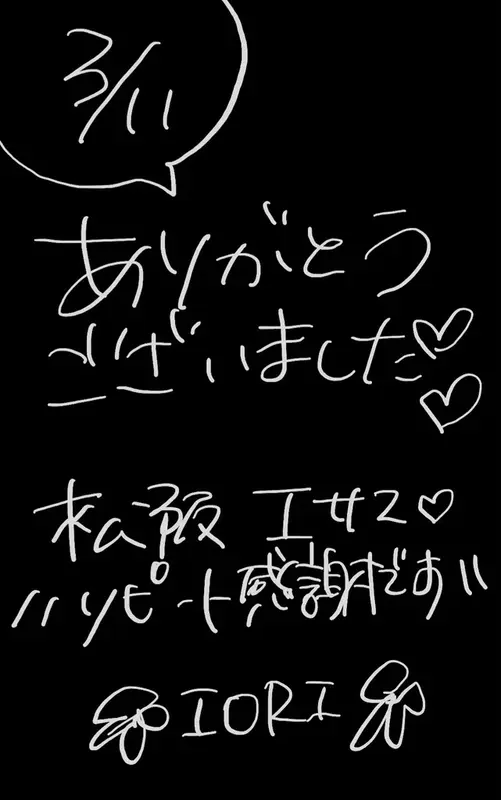 3/11
ありがとう
ございました♡♡
松阪 エサス♡
リピート感謝です
IORI